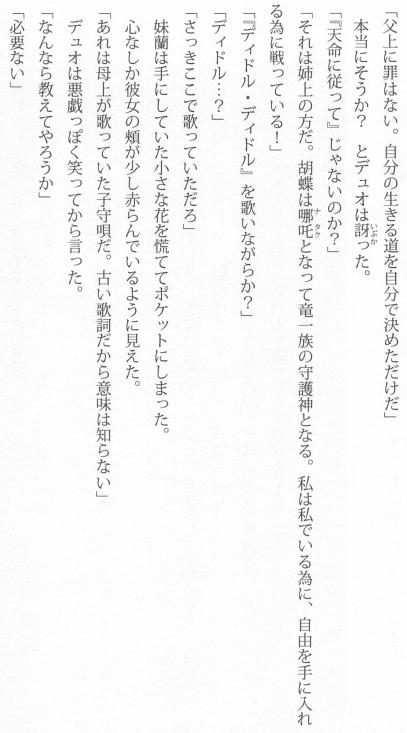 「父上に罪はない。自分の生きる道を自分で決めただけだ」
本当にそうか？　とデュオは訝いぶかった。
「『天命に従って』じゃないのか？」
「それは姉上の方だ。胡蝶は哪吒ナタクとなって竜一族の守護神となる。私は私でいる為に、自由を手に入れ
る為に戦っている！」
「『ディドル・ディドル』を歌いながらか？」
「ディドル…？」
「さっきここで歌っていただろ」
妹蘭は手にしていた小さな花を慌ててポケットにしまった。
心なしか彼女の頬が少し赤らんでいるように見えた。
「あれは母上が歌っていた子守唄だ。古い歌詞だから意味は知らない」
デュオは悪戯っぽく笑ってから言った。
「なんなら教えてやろうか」
「必要ない」